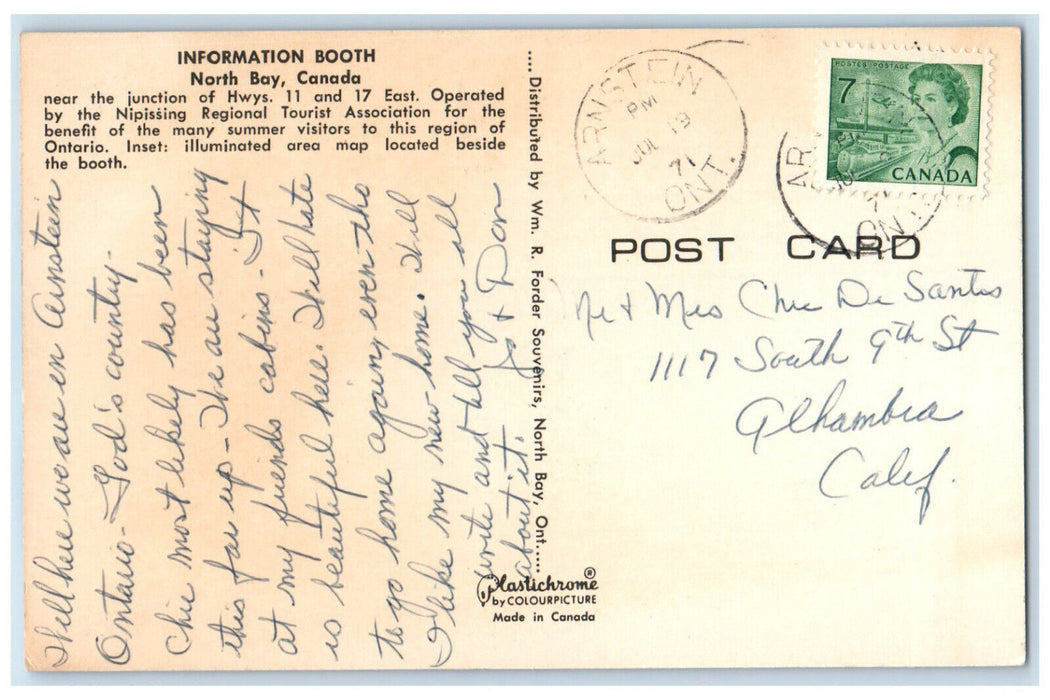 INFORMATION BOOTH
North Bay, Canada
near the junction of Hwys. 11 and 17 East. Operated
by the Nipissing Regional Tourist Association for the
benefit of the many summer visitors to this region of
Ontario. Inset: illuminated area map located beside
the booth.
Well here we are in Arnstein
Ontario - God's country -
Chic most likely has been
this far up - We are staying
at my friends cabins - It
is beautiful here. Will hate
to go home again, even tho
I like my new home. Will
write and tell you all
about it.
Jo + Don
.... Distributed by Wm. R. Forder Souvenirs, North Bay, Ont.....
Plastichrome®
by COLOURPICTURE
Made in Canada
ARNSTEIN
PM
JUL 19
71
ONT.
POSTES POSTAGE
7
CANADA
AR
PM
JUL
7
ONT.
POST CARD
Mr + Mrs Chic De Santis
1117 South 9th St
Alhambra
Calif.